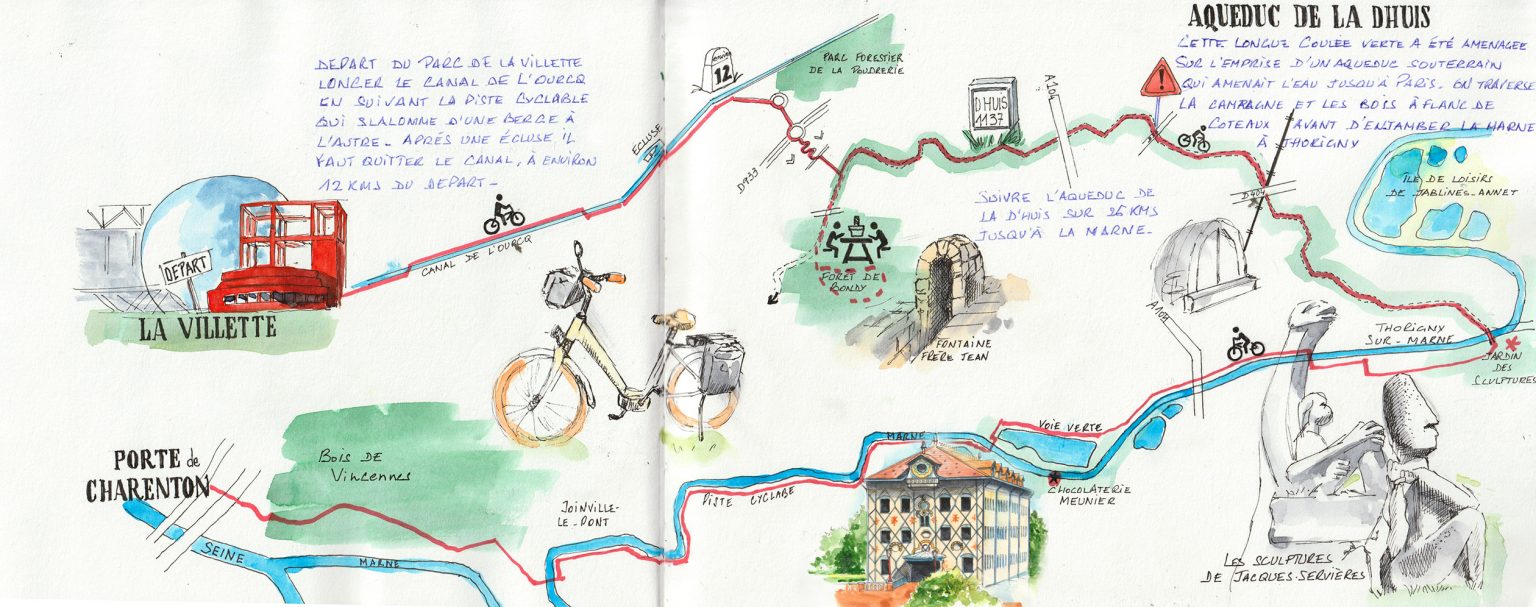 DEPART DU PARC DE LA VILLETTE
LONGER LE CANAL DE L'OURCQ
EN SUIVANT LA PISTE CYCLABLE
QUI SLALOMME D'UNE BERGE À
L'AUTRE. APRÈS UNE ÉCLUSE IL
FAUT QUITTER LE CANAL, À ENVIRON
12 KMS DU DEPART -
DEPART
LA VILLETTE
CANAL DE L'OURCQ
ECLUSE
environ
12
PARC FORESTIER
DE LA POUDRERIE
D933
AQUEDUC DE LA DHUIS
CETTE LONGUE COULÉE VERTE A ÉTÉ AMENAGEE
SUR L'EMPRISE D'UN AQUEDUC SOUTERRAIN
QUI AMENAIT L'EAU JUSQU'À PARIS. ON TRAVERSE
LA CAMPAGNE ET LES BOIS À FLANC DE
COTEAUX AVANT D'ENTAMBER LA MARNE
À THORIGNY
DHUIS
1137
A104
SUIVRE L'AQUEDUC DE
LA D'HUIS SUR 25 KMS
JUSQU'À LA MARNE -
FORÊT DE
BONDY
FONTAINE
FRÈRE JEAN
D404
ÎLE DE LOISIRS
DE JABLINES-ANNET
A104
THORIGNY
SUR-MARNE
JARDIN
DES
SCULPTURES
LES SCULPTURES
DE JACQUES-SERVIÈRES
VOIE VERTE
CHOCOLATERIE
MEUNIER
MARNE
PISTE CYCLABE
JOINVILLE-
LE-PONT
BOIS DE
Vincennes
PORTE de
CHARENTON
SEINE
MARNE